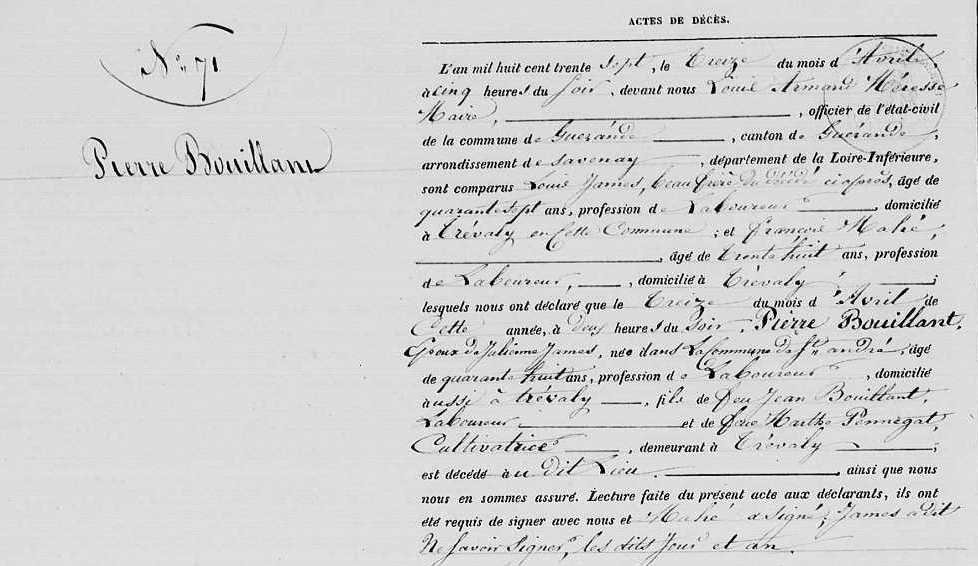 ACTES DE DÉCÈS.
N° 71
Pierre Bouillant
L'an mil huit cent trente sept, le treize du mois d'Avril
à cinq heures du soir, devant nous Louis Armand Méresse
Maire, officier de l'état-civil
de la commune de Guérande, canton de Guérande,
arrondissement de Savenay, département de la Loire-Inférieure,
sont comparus Louis James, beau frère du décédé ci après, âgé de
quarante sept ans, profession de Laboureur, domicilié
à Trévaly en cette Commune; et françois Mahé,
, âgé de trente huit ans, profession
de Laboureur, domicilié à Trévaly;
lesquels nous ont déclaré que le treize du mois d'Avril de
cette année, à deux heures du soir, Pierre Bouillant,
Epoux de Julienne James, née dans la Commune de St. andré, âgé
de quarante huit ans, profession de Laboureur, domicilié
aussi à trévaly, fils de feu Jean Bouillant,
Laboureur et de feue Marthe Pennegat,
Cultivatrice, demeurant à Trévaly;
est décédé au dit Lieu, ainsi que nous
nous en sommes assuré. Lecture faite du présent acte aux déclarants, ils ont
été requis de signer avec nous et Mahé a signé; James a dit
Ne savoir signer, les dits Jour et an.